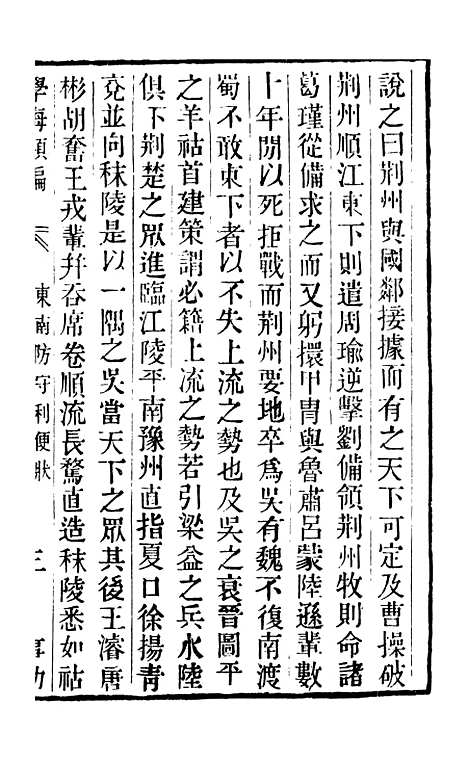 說之曰荆州與國鄰接據而有之天下可定及曹操破
荆州順江東下則遣周瑜逆擊劉備領荆州牧則命諸
葛瑾從備求之而又躬擐甲胄與魯肅呂蒙陸遜輩數
十年閒以死拒戰而荆州要地卒爲吳有魏不復南渡
蜀不敢東下者以不失上流之勢也及吳之衰晉圖平
之羊祜首建策謂必籍上流之勢若引梁益之兵水陸
俱下荆楚之眾進臨江陵平南豫州直指夏口徐揚青
兖並向秣陵是以一隅之吳當天下之眾其後王濬唐
彬胡奮王戎輩幷吞席卷順流長驁直造秣陵悉如祜
學海類編 東南防守利便 三